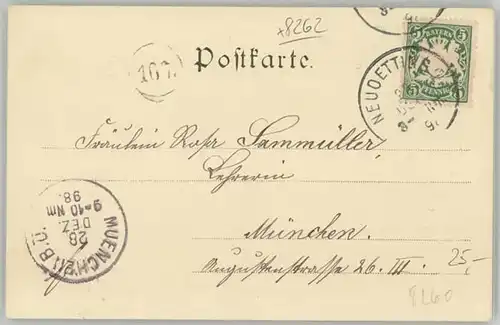 x8262
Postkarte.
BAYERN
5 5
PFENNIG
NEUOETTI
Fräulein Rosa Sammüller,
Lehrerin
München.
Augustenstrasse 26. III
25,-
8260
MUENCHEN B.O.
26
DEZ.
9-10 Nm
98.